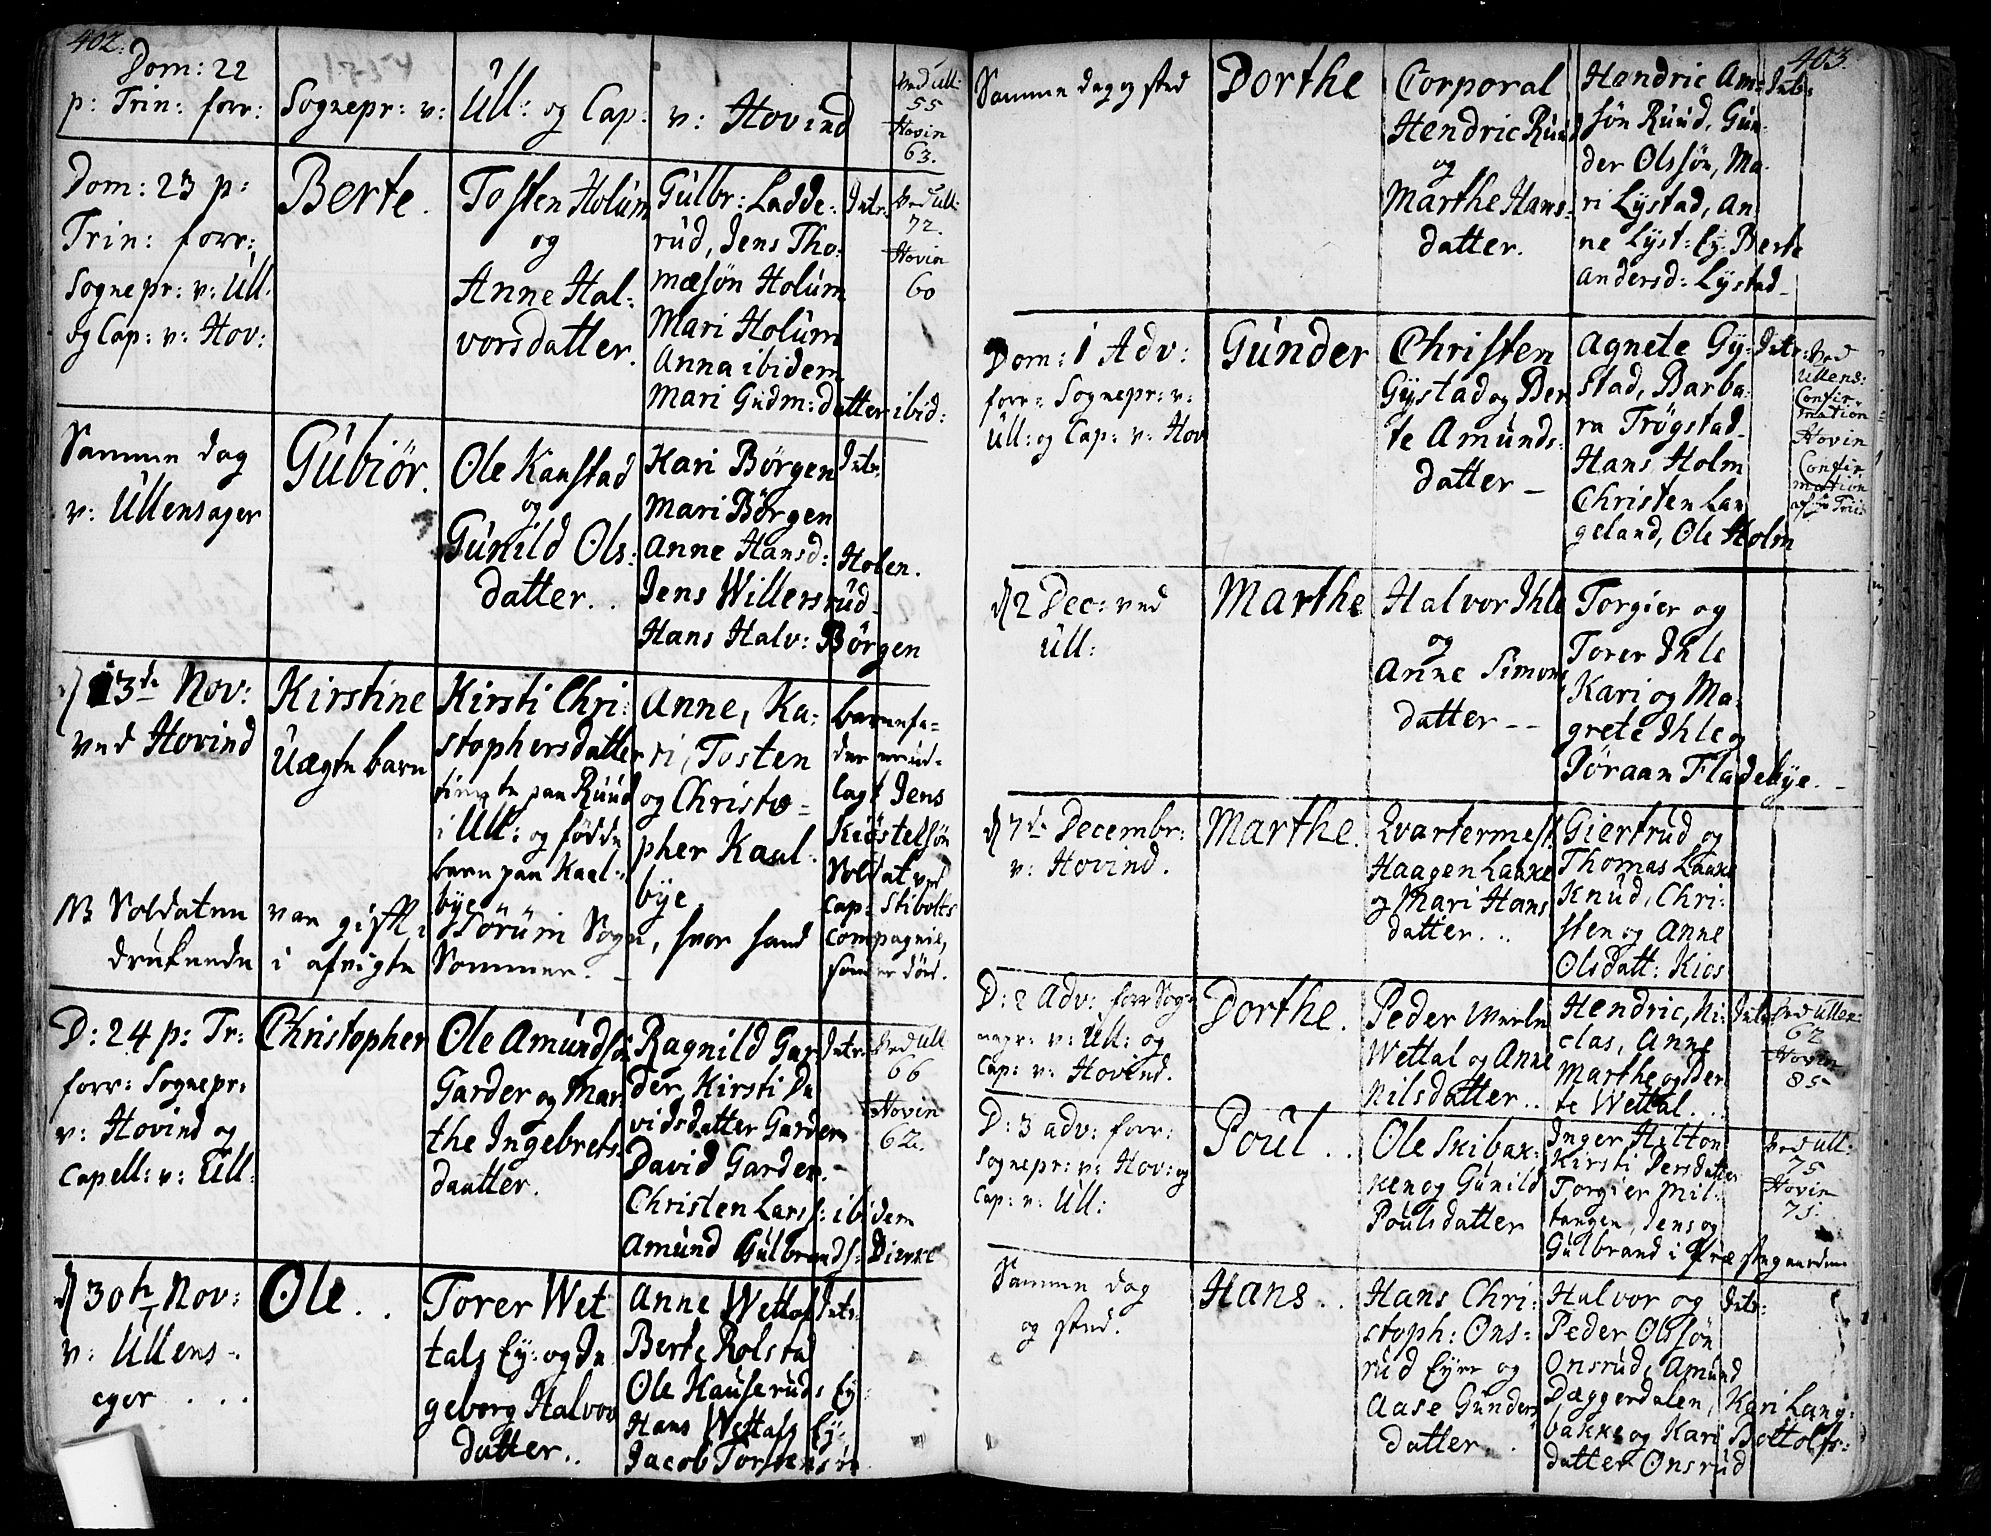 402.
Dom: 22
p: Trin: forr: Sognepr: v: Ull: og Cap: v: Hovind
Ved Ull:
55
Hovin
63.
Dom: 23 p:
Trin: forr:
Sognepr: v: Ull.
og Cap: v: Hov:
Berte.
Tosten Holum
og
Anne Hal-
vorsdatter.
Gulbr: Ladde-
rud, Jens Tho-
mæsøn Holum
Mari Holum
Anna ibidem
Mari Gudm: datter ibid:
Intr:
Ved Ull:
72.
Hovin
60
Samme dag
v: Ullensager
Gubiør.
Ole Kaustad
og
Gunild Ols-
datter..
Kari Børgen
Mari Børgen
Anne Hansd: Holen.
Jens Willersrud-
Hans Halv: Børgen
Intr.
d 13de Nov:
ved Hovind
Kirstine
Uægte barn
Kirsti Chri-
stophersdatter
tiente paa Ruud
i Ull: og fødde
barn paa Kaal-
bye
Anne, Ka-
ri, Tosten
og Christo-
pher Kaal-
bye
barnefa-
der er ud-
lagt Jens
Kiøstelsøn
Soldat ved
Cap: Stibolts
Compagnie,
som er død.
NB Soldaten var gift i Sørum Sogn, hvor hand
drukende i afvigte Sommer. -
D: 24 p: Tr:
forr: Sognepr:
v: Hovind og
Capell: v: Ull:
Christopher
Ole Amundsøn
Garder og Mar
the Ingebrets-
daatter.
Ragnild Gar
der, Kirsti Da
vidsdatter Garder
David Garder. -
Christen Larss: ibidem
Amund Gulbrands: Dirke
Intr:
Ved Ull
66
Hovin
62.
d 30te Nov:
v: Ullens-
ager ....
Ole..
Torer Wet
tals Ey: og In
geborg Halvor
datter..
Anne Wettal
Berte Rolsta
Ole Hauseruds Ey:
Hans Wettals Ey:
Jacob Torstensøn
Intr:
403.
Samme dag og sted
Dorthe
Corporal
Hendric Ruud
og
Marthe Hans-
datter.
Hendric Am-
søn Ruud, Gun-
der Olssøn, Ma-
ri Lystad, An
ne Lyst: Ey: Berte
Andersd: Lystad-
Intr:
Dom: 1 Adv:
forr: Sognepr: v:
Ull: og Cap: v: Hov
Gunder
Christen
Gystad og Ber
te Amunds-
datter -
Agnete Gy-
stad, Barba-
ra Trøgstad-
Hans Holm
Christen Lan
geland, Ole Holm
Intr:
Ved
Ullens:
Confir-
mation
Hovin
Confir
mation
d 2 Dec: ved
Ull:
Marthe
Halvor Ihle
og
Anne Simons
datter - -
Torgier og
Torer Ihle
Kari og Ma-
grete Ihle og
Pøraan Fladebye. -
d 7de Decembr:
v: Hovind.
Marthe.
Qvartermest.
Haagen Laake
og Mari Hans
datter...
Giertrud og
Thomas Laake
Knud, Chri-
sten og Anne
Olsdatt: Kios
D: 2 Adv: forr Sog-
nepr: v: Ull: og
Cap: v: Hovind.
Dorthe.
Peder Werle
Wettal og Anne
Nilsdatter..
Hendric, Ni-
clas, Anne
Marthe og Ber
te Wettal..
Intr:
Ved Ullen:
62
Hovin
85
D: 3 adv: forr:
Sognepr: v: Hov: og
Cap: v: Ull:
Poul..
Ole Skibak-
ken og Gunild
Poulsdatter
Inger Hilton
Kirsti Persdatter
Torgier Mil-
tangen, Jens og
Gulbrand i Præstegaarden
Ved Ull:
75
Hovin
75
Samme dag
og sted.
Hans..
Hans Chri-
stoph: Ons-
rud Eyer og
Aase Gunders
datter..
Halvor og
Peder Olssøn
Onsrud, Amund
Dæggerdalen, Kari Lang-
bakke og Kari Bottolfs-
datter Onsrud
Intr: